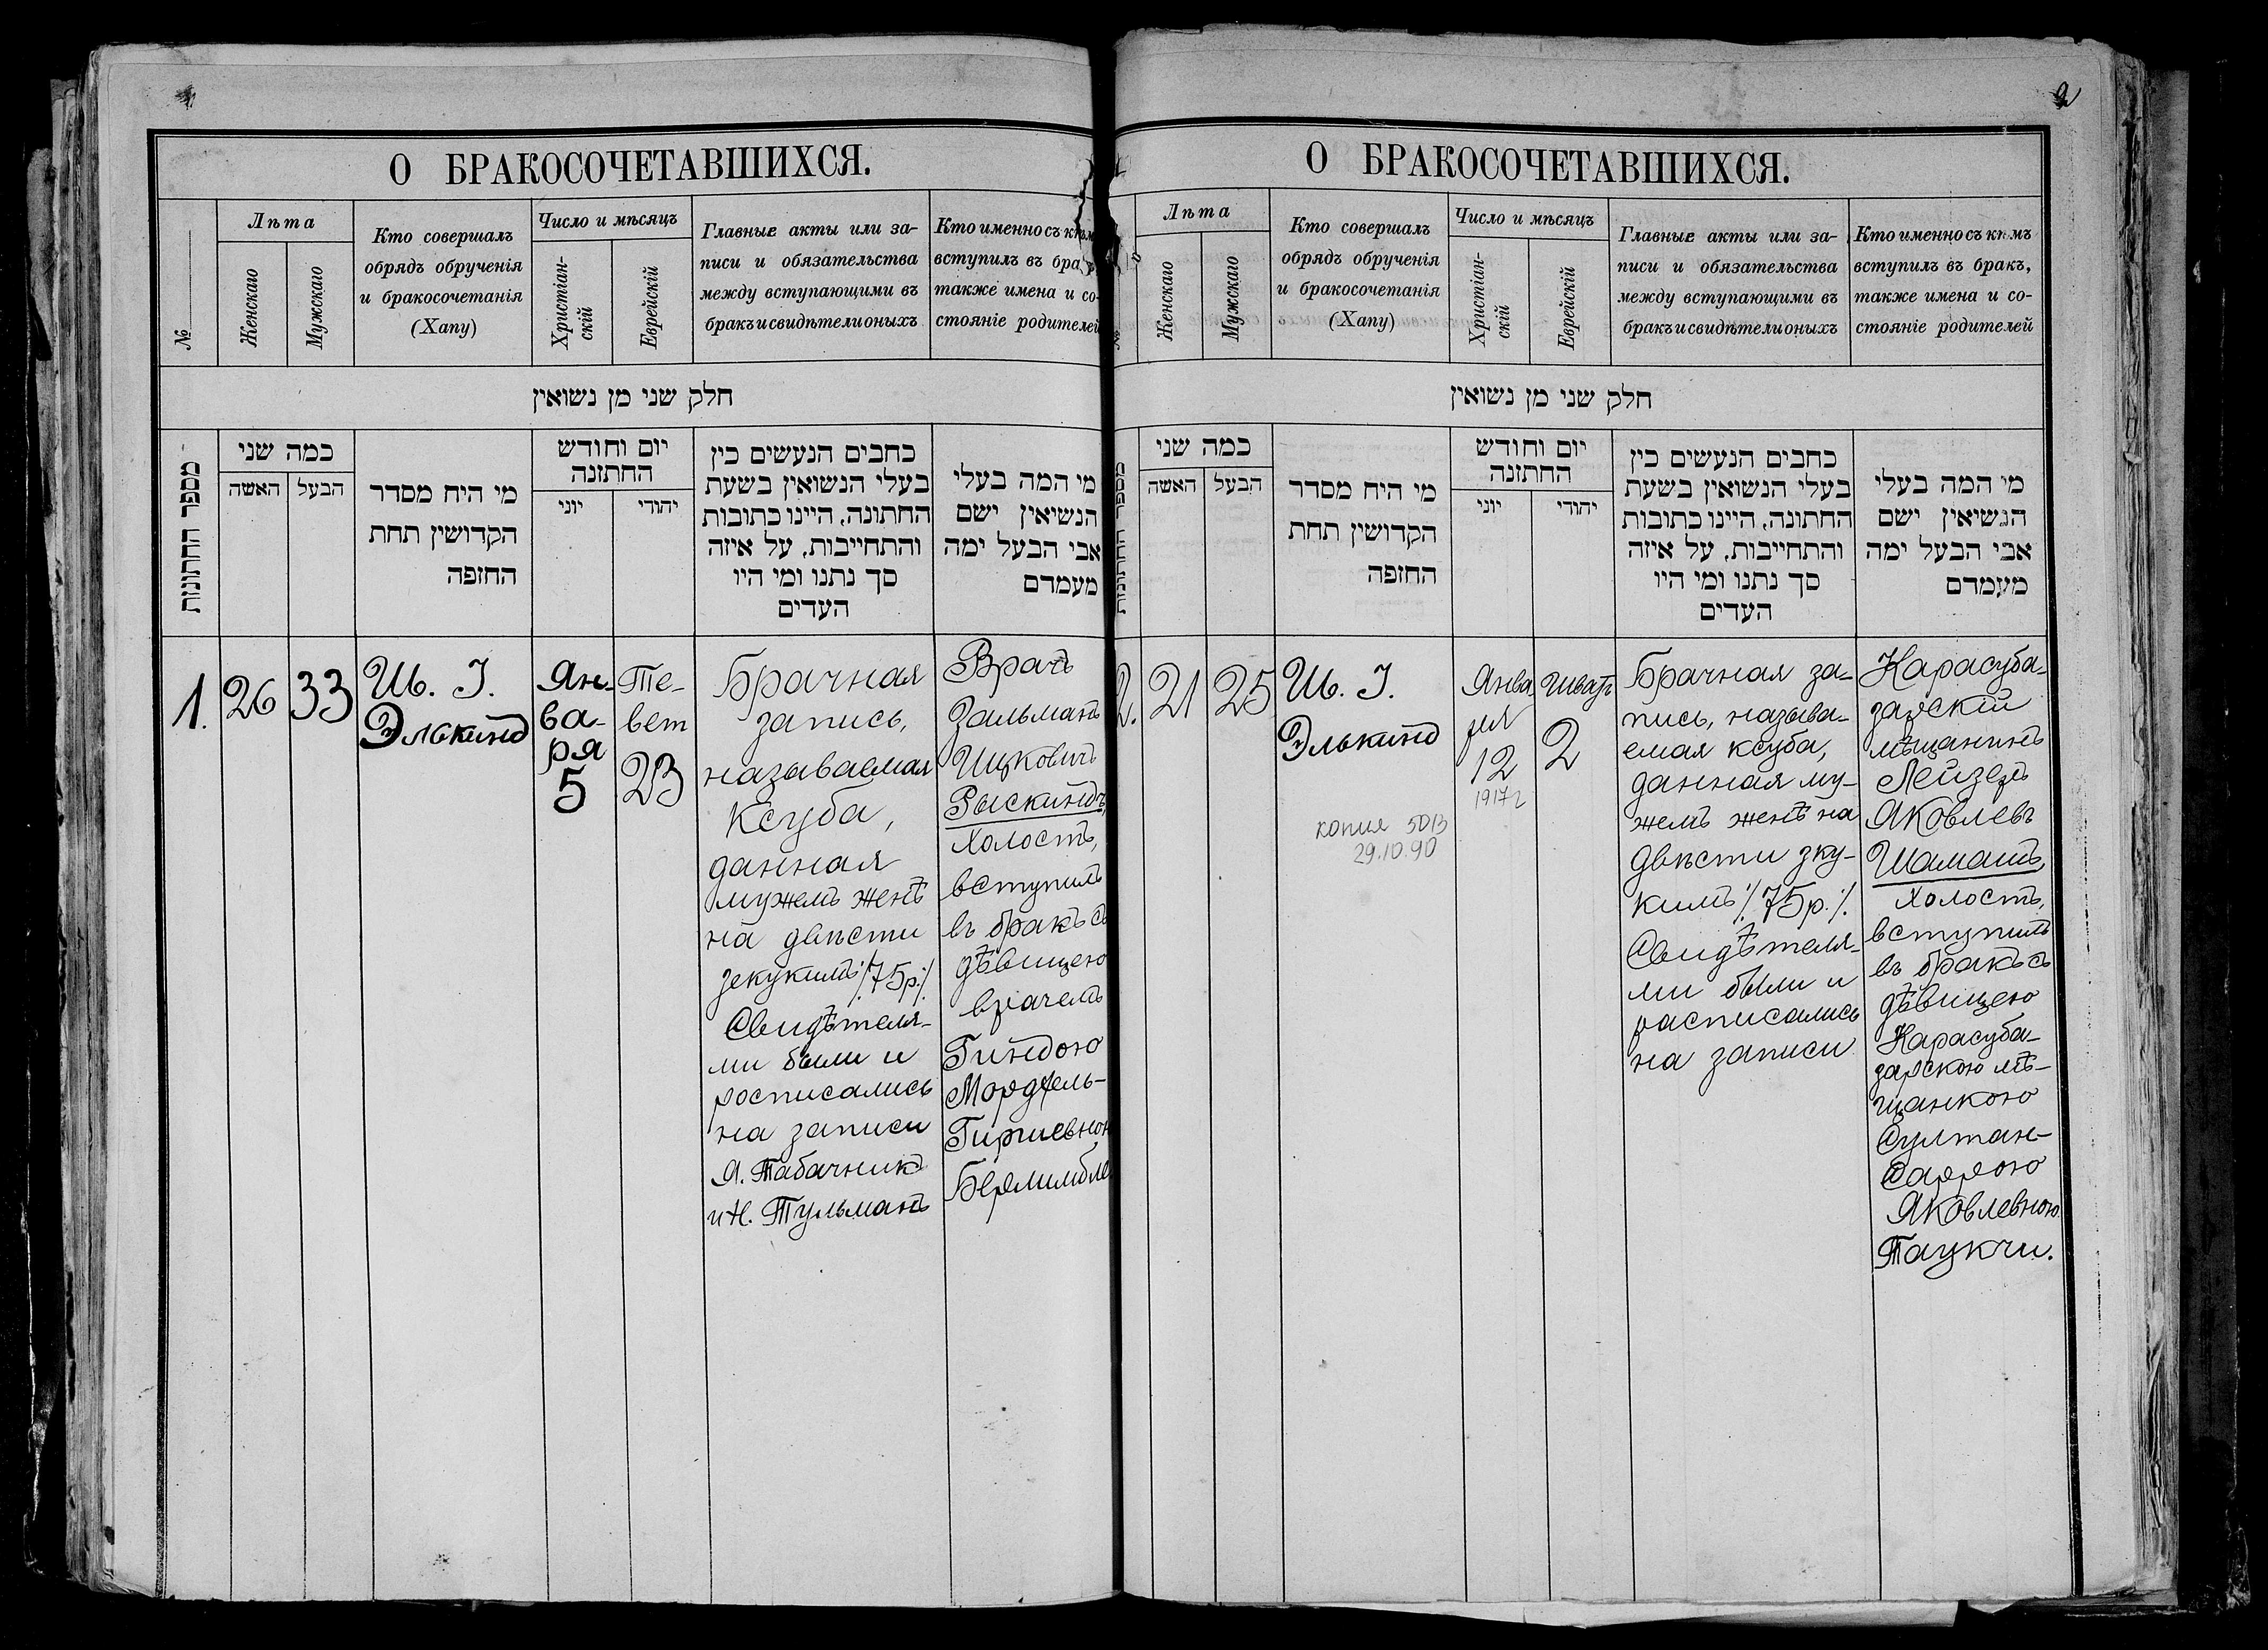 О БРАКОСОЧЕТАВШИХСЯ.
№
Лѣта
Женскаго
Мужскаго
Кто совершалъ
обрядъ обрученія
и бракосочетанія
(Хапу)
Число и мѣсяцъ
Христіан-
скій
Еврейскій
Главные акты или за-
писи и обязательства
между вступающими въ
бракъ и свидѣтели оныхъ
Кто именно съ кѣмъ
вступилъ въ бра
также имена и со-
стояніе родителей
חלק שני מן נשואין
מספר החתונות
כמה שני
האשה
הבעל
מי היח מסדר
הקדושין תחת
החופה
יום וחודש
החתונה
יוני
יהודי
כחבים הנעשים כין
בעלי הנשואין בשעת
החתונה, היינו כתובות
והתחייבות, על איזה
סך נתנו ומי היו
העדים
מי המה בעלי
הנשיאין ישם
אבי הבעל ימה
מעמדם
1.
26
33
Ш. І.
Элькинд
Ян-
ва-
ря
5
Те-
вет
23
Брачная
запись,
называемая
Ксуба,
данная
мужемъ женѣ
на двѣсти
зекукимъ /:75р:/.
Свидѣтеля-
ми были и
росписались
на записи
Я. Табачникъ
и Н. Тульманъ
Врачъ
Зальманъ
Ицковичъ
Рыскиндъ,
холостъ,
вступилъ
въ бракъ съ
дѣвицею
врачемъ
Гиндою
Мордхель-
Гиршевною
О БРАКОСОЧЕТАВШИХСЯ.
2
№
Лѣта
Женскаго
Мужскаго
Кто совершалъ
обрядъ обрученія
и бракосочетанія
(Хапу)
Число и мѣсяцъ
Христіан-
скій
Еврейскій
Главные акты или за-
писи и обязательства
между вступающими въ
бракъ и свидѣтели оныхъ
Кто именно съ кѣмъ
вступилъ въ бракъ,
также имена и со-
стояніе родителей
חלק שני מן נשואין
מספר החתונות
כמה שני
האשה
הבעל
מי היח מסדר
הקדושין תחת
החופה
יום וחודש
החתונה
יוני
יהודי
כחבים הנעשים כין
בעלי הנשואין בשעת
החתונה, היינו כתובות
והתחייבות, על איזה
סך נתנו ומי היו
העדים
מי המה בעלי
הנשיאין ישם
אבי הבעל ימה
מעמדם
2.
21
25
Ш. І.
Элькинд
копия 5013
29.10.90
Янва
ря
12
1917 г
Шватъ
2
Брачная за-
пись, называ-
емая ксуба,
данная му-
жемъ женѣ на
двѣсти зку-
кимъ /:75р:/.
Свидѣтеля-
ми были и
расписались
на записи
Карасуба-
зарскій
мѣщанинъ
Лейзеръ
Яковлевъ
Шамашъ,
холостъ,
вступилъ
въ бракъ съ
дѣвицею
Карасуба-
зарскою мѣ-
щанкою
Султан-
Саррою
Яковлевною
Таукчи.